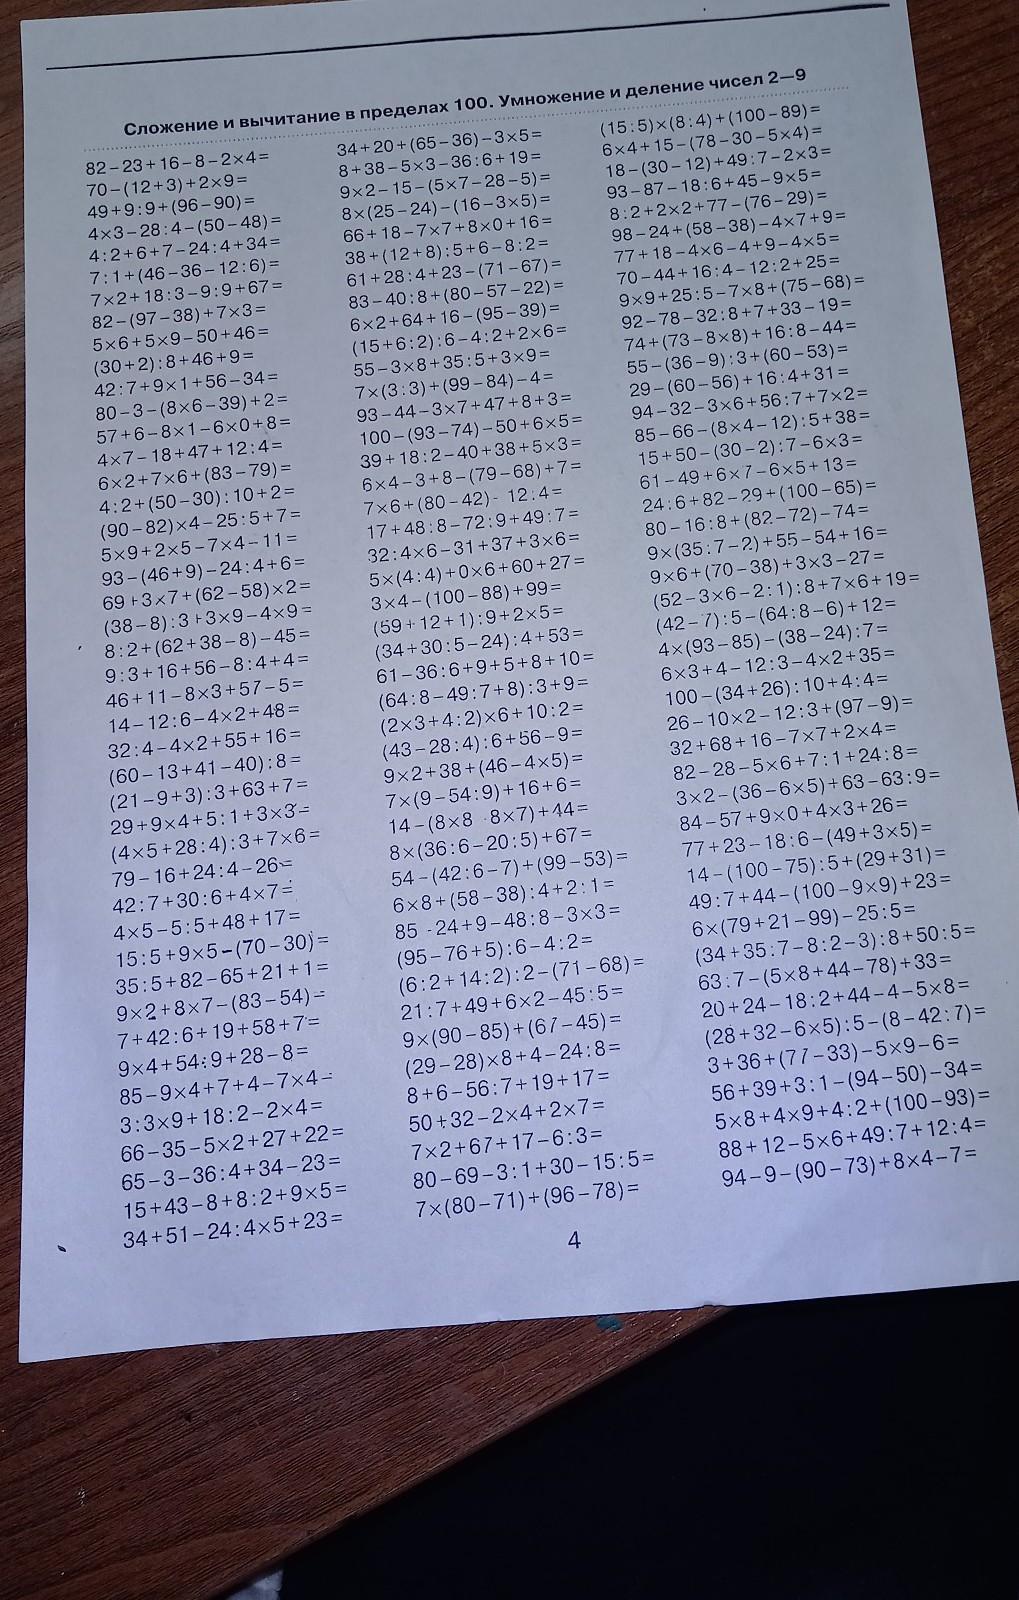 Сложение и вычитание в пределах 100. Умножение и деление чисел 2—9
82−23+16−8−2×4=
70−(12+3)+2×9=
49+9:9+(96−90)=
4×3−28:4−(50−48)=
4:2+6+7−24:4+34=
7:1+(46−36−12:6)=
7×2+18:3−9:9+67=
82−(97−38)+7×3=
5×6+5×9−50+46=
(30+2):8+46+9=
42:7+9×1+56−34=
80−3−(8×6−39)+2=
57+6−8×1−6×0+8=
4×7−18+47+12:4=
6×2+7×6+(83−79)=
4:2+(50−30):10+2=
(90−82)×4−25:5+7=
5×9+2×5−7×4−11=
93−(46+9)−24:4+6=
69+3×7+(62−58)×2=
(38−8):3+3×9−4×9=
8:2+(62+38−8)−45=
9:3+16+56−8:4+4=
46+11−8×3+57−5=
14−12:6−4×2+48=
32:4−4×2+55+16=
(60−13+41−40):8=
(21−9+3):3+63+7=
29+9×4+5:1+3×3=
(4×5+28:4):3+7×6=
79−16+24:4−26=
42:7+30:6+4×7=
4×5−5:5+48+17=
15:5+9×5−(70−30)=
35:5+82−65+21+1=
9×2+8×7−(83−54)=
7+42:6+19+58+7=
9×4+54:9+28−8=
85−9×4+7+4−7×4=
3:3×9+18:2−2×4=
66−35−5×2+27+22=
65−3−36:4+34−23=
15+43−8+8:2+9×5=
34+51−24:4×5+23=
34+20+(65−36)−3×5=
8+38−5×3−36:6+19=
9×2−15−(5×7−28−5)=
8×(25−24)−(16−3×5)=
66+18−7×7+8×0+16=
38+(12+8):5+6−8:2=
61+28:4+23−(71−67)=
83−40:8+(80−57−22)=
6×2+64+16−(95−39)=
(15+6:2):6−4:2+2×6=
55−3×8+35:5+3×9=
7×(3:3)+(99−84)−4=
93−44−3×7+47+8+3=
100−(93−74)−50+6×5=
39+18:2−40+38+5×3=
6×4−3+8−(79−68)+7=
7×6+(80−42)- 12:4=
17+48:8−72:9+49:7=
32:4×6−31+37+3×6=
5×(4:4)+0×6+60+27=
3×4−(100−88)+99=
(59+12+1):9+2×5=
(34+30:5−24):4+53=
61−36:6+9+5+8+10=
(64:8−49:7+8):3+9=
(2×3+4:2)×6+10:2=
(43−28:4):6+56−9=
9×2+38+(46−4×5)=
7×(9−54:9)+16+6=
14−(8×8 - 8×7)+44=
8×(36:6−20:5)+67=
54−(42:6−7)+(99−53)=
6×8+(58−38):4+2:1=
85 -24+9−48:8−3×3=
(95−76+5):6−4:2=
(6:2+14:2):2−(71−68)=
21:7+49+6×2−45:5=
9×(90−85)+(67−45)=
(29−28)×8+4−24:8=
8+6−56:7+19+17=
50+32−2×4+2×7=
7×2+67+17−6:3=
80−69−3:1+30−15:5=
7×(80−71)+(96−78)=
(15:5)×(8:4)+(100−89)=
6×4+15−(78−30−5×4)=
18−(30−12)+49:7−2×3=
93−87−18:6+45−9×5=
8:2+2×2+77−(76−29)=
98−24+(58−38)−4×7+9=
77+18−4×6−4+9−4×5=
70−44+16:4−12:2+25=
9×9+25:5−7×8+(75−68)=
92−78−32:8+7+33−19=
74+(73−8×8)+16:8−44=
55−(36−9):3+(60−53)=
29−(60−56)+16:4+31=
94−32−3×6+56:7+7×2=
85−66−(8×4−12):5+38=
15+50−(30−2):7−6×3=
61−49+6×7−6×5+13=
24:6+82−29+(100−65)=
80−16:8+(82−72)−74=
9×(35:7−2)+55−54+16=
9×6+(70−38)+3×3−27=
(52−3×6−2:1):8+7×6+19=
(42−7):5−(64:8−6)+12=
4×(93−85)−(38−24):7=
6×3+4−12:3−4×2+35=
100−(34+26):10+4:4=
26−10×2−12:3+(97−9)=
32+68+16−7×7+2×4=
82−28−5×6+7:1+24:8=
3×2−(36−6×5)+63−63:9=
84−57+9×0+4×3+26=
77+23−18:6−(49+3×5)=
14−(100−75):5+(29+31)=
49:7+44−(100−9×9)+23=
6×(79+21−99)−25:5=
(34+35:7−8:2−3):8+50:5=
63:7−(5×8+44−78)+33=
20+24−18:2+44−4−5×8=
(28+32−6×5):5−(8−42:7)=
3+36+(77−33)−5×9−6=
56+39+3:1−(94−50)−34=
5×8+4×9+4:2+(100−93)=
88+12−5×6+49:7+12:4=
94−9−(90−73)+8×4−7=
4